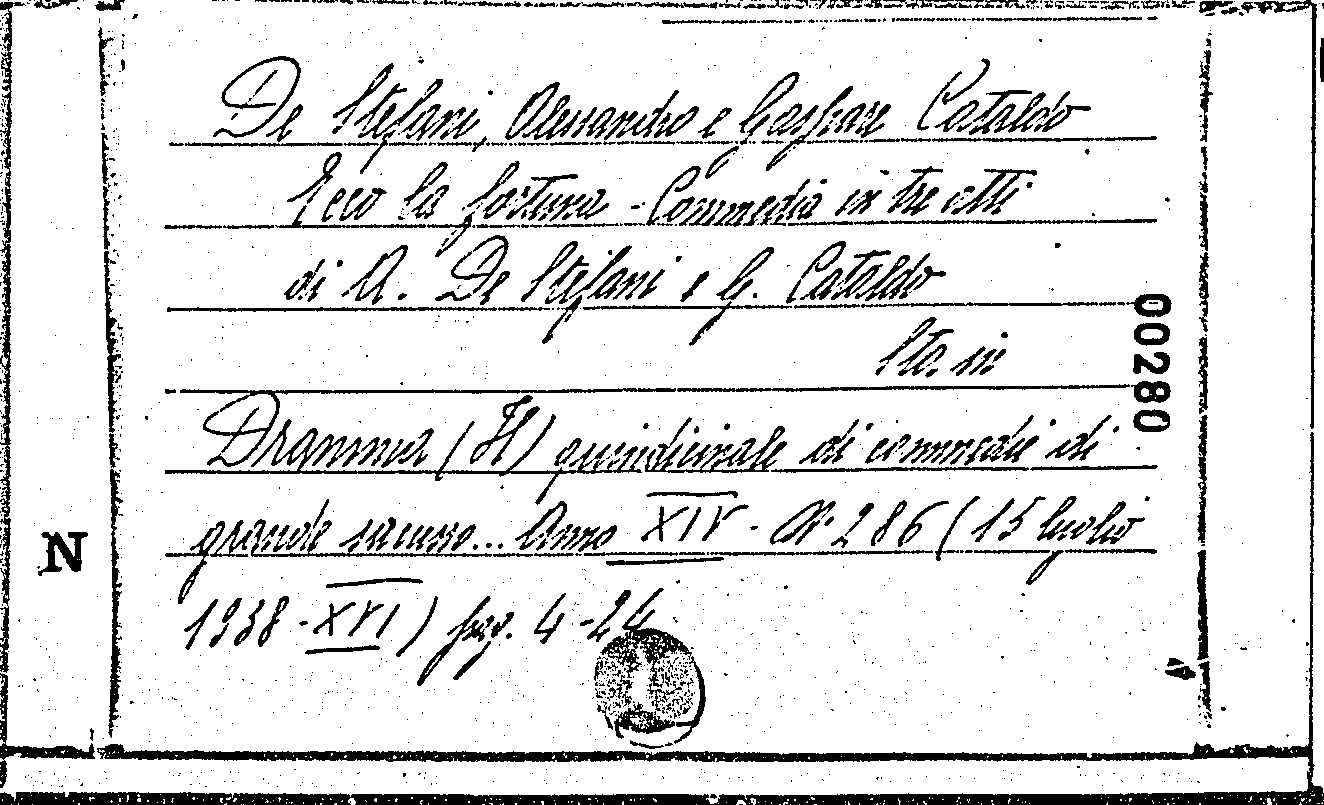 De Stefani, Alessandro e Gaspare Cataldo
Ecco la fortuna - Commedia in tre atti
di A. De Stefani e G. Cataldo
Sta in
Dramma (Il) quindicinale di commedie di
grande successo... Anno XIV - N. 286 (15 luglio
1938 - XVI) pag. 4-24
00280
N